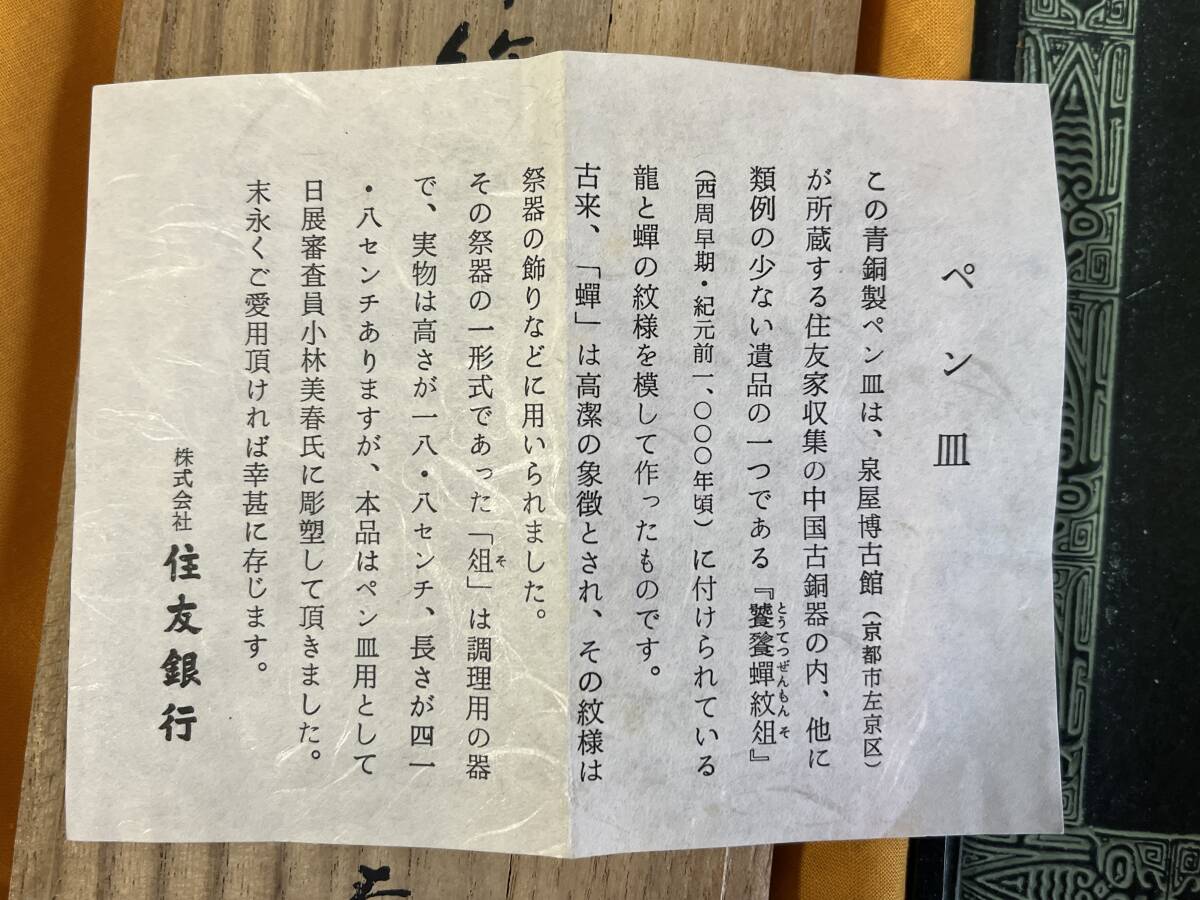 ペン皿
この青銅製ペン皿は、泉屋博古館（京都市左京区）
が所蔵する住友家収集の中国古銅器の内、他に
類例の少ない遺品の一つである『饕餮蟬紋俎』
とうてつぜんもんそ
（西周早期・紀元前一、〇〇〇年頃）に付けられている
龍と蟬の紋様を模して作ったものです。
古来、「蟬」は高潔の象徴とされ、その紋様は
祭器の飾りなどに用いられました。
その祭器の一形式であった「俎」は調理用の器
そ
で、実物は高さが一八・八センチ、長さが四一
・八センチありますが、本品はペン皿用として
日展審査員小林美春氏に彫塑して頂きました。
末永くご愛用頂ければ幸甚に存じます。
株式会社 住友銀行